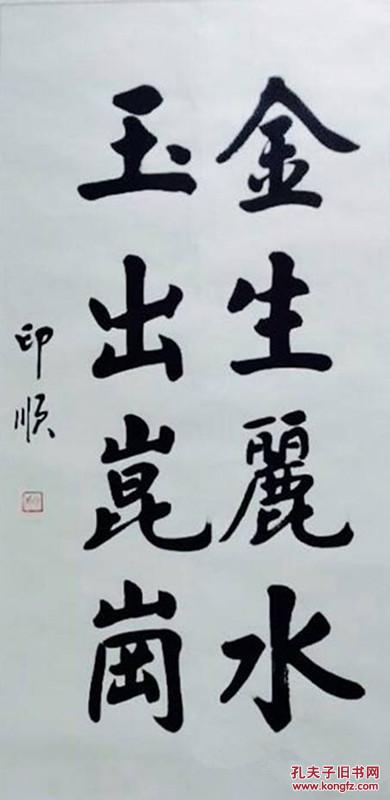 金生麗水
玉出崑崗
印順
孔夫子旧书网
www.kongfz.com